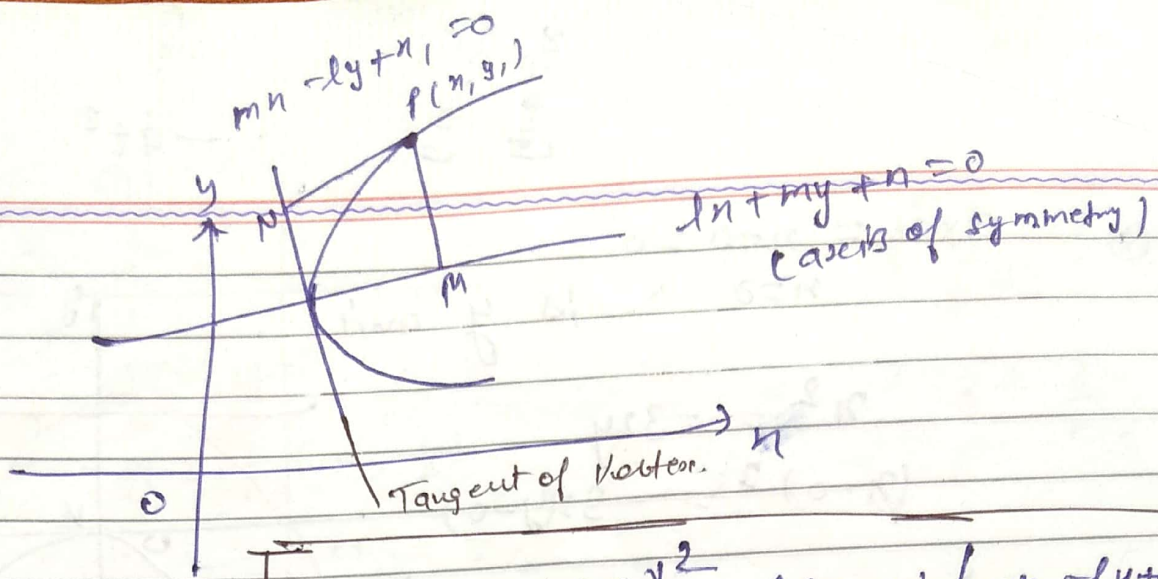 mn - ly + n₁ = 0
P(n, y₁)
y
N
ln + my + n = 0
(axis of symmetry)
M
n
O
Tangent of Vertex.